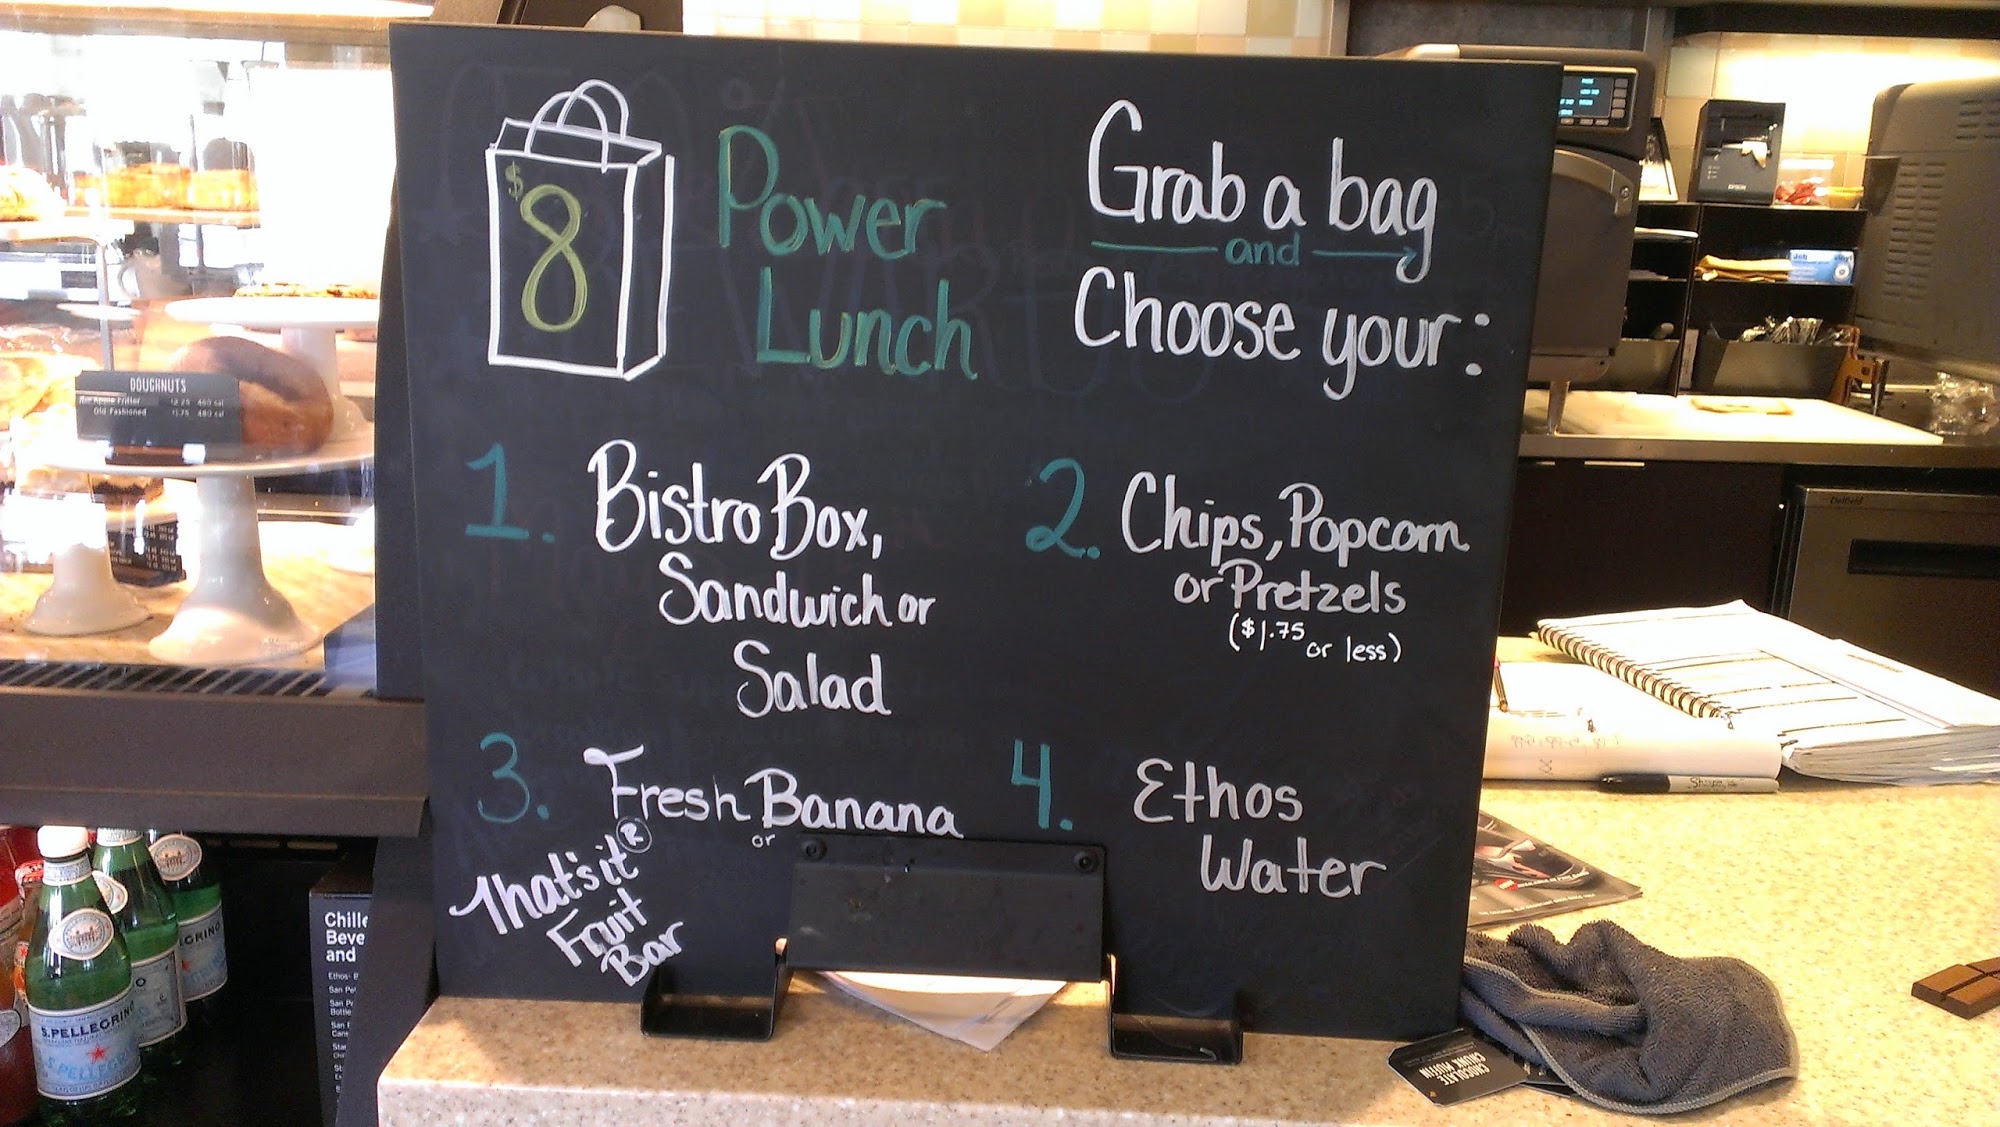 $8
Power
Lunch
Grab a bag
and
Choose your:
1. Bistro Box,
Sandwich or
Salad
2. Chips, Popcorn
or Pretzels
($1.75 or less)
3. Fresh Banana
or
That's it®
Fruit
Bar
4. Ethos
Water
DOUGHNUTS
Apple Fritter $2.25 460 cal
Old Fashioned $1.75 480 cal
S.PELLEGRINO
S.PELLEGRINO
Chille
Beve
and
Ethos
San Pe
Bottle
EPSON
Sharpie
CHOCOLATE
CHUNK MUFFIN